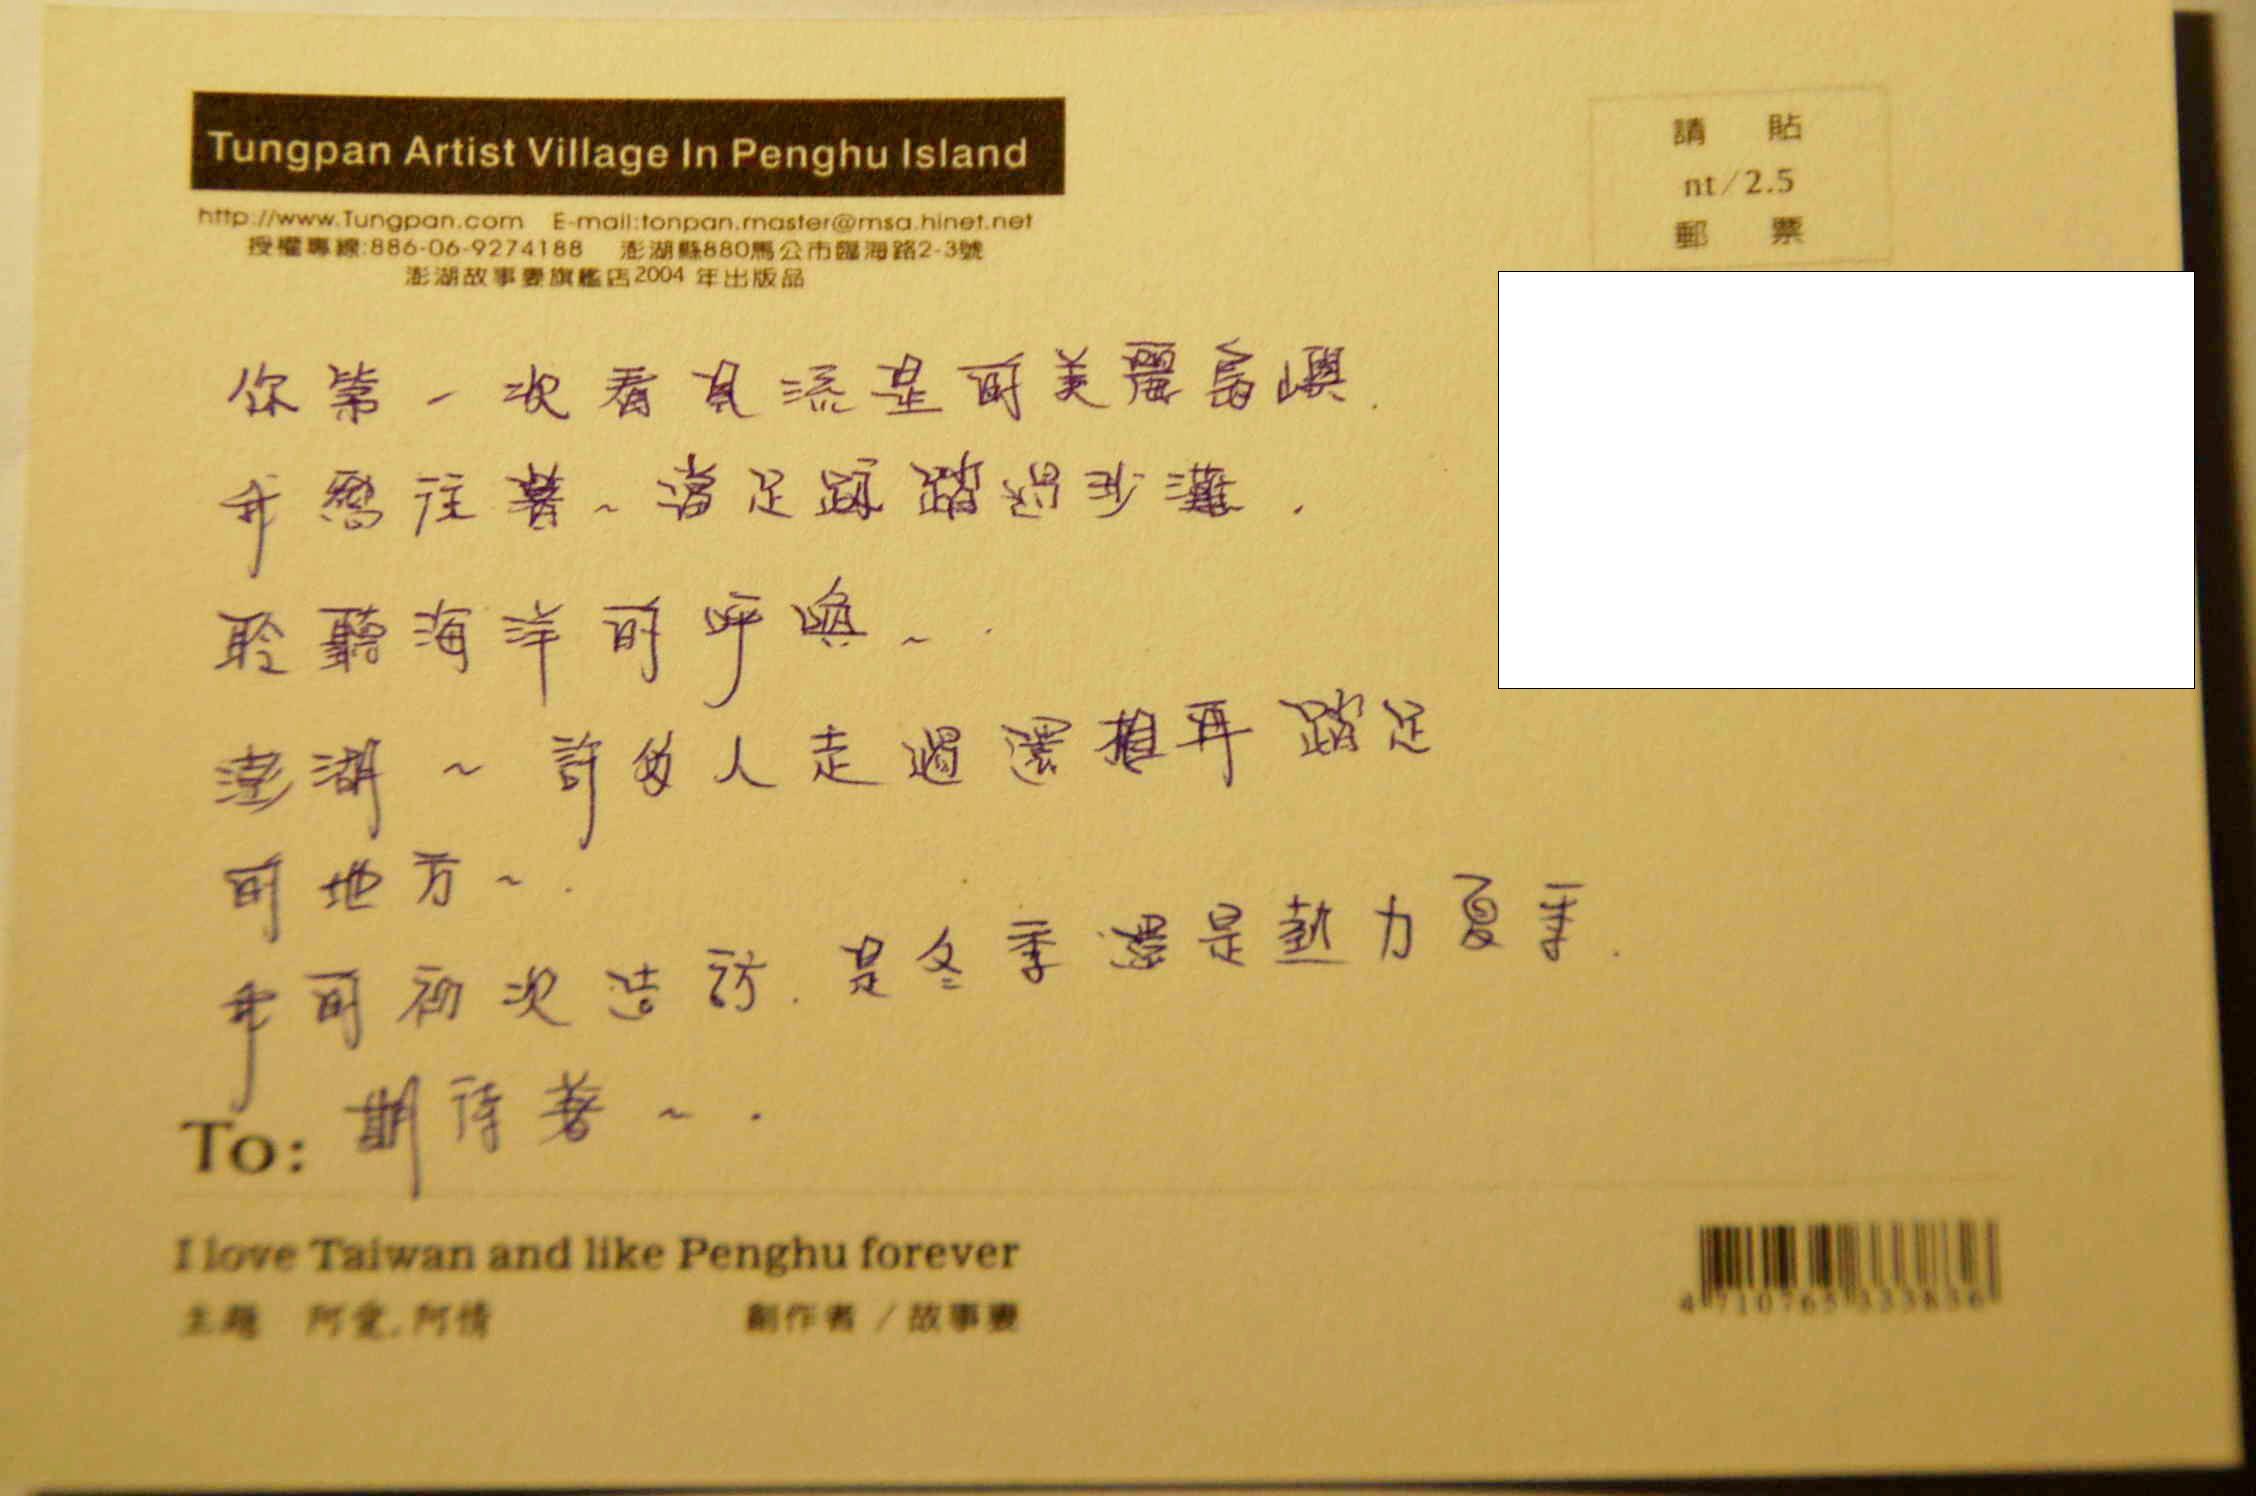 Tungpan Artist Village In Penghu Island
http://www.Tungpan.com E-mail:tonpan.master@msa.hinet.net
授權專線:886-06-9274188 澎湖縣880馬公市臨海路2-3號
澎湖故事妻旗艦店2004 年出版品
請 貼
nt/2.5
郵 票
你第一次看見流是的美麗島嶼.
我嚮往著~當足跡踏過沙灘.
聆聽海洋的呼喚~.
澎湖~許多人走過還想再踏足
的地方~.
我的初次造訪.是冬季還是熱力夏季.
期待著~.
To:
I love Taiwan and like Penghu forever
主題 阿愛.阿情 創作者/故事妻